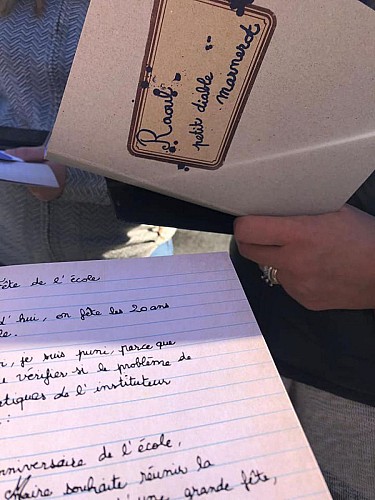 Raoul
petit diable
Marnerot
fête de l'école
d'hui, on fête les 20 ans
le.
n, je suis puni, parce que
vérifier si le problème de
atiques de l'instituteur
:
nniversaire de l'école,
Maire souhaite réunir la
d'une grande fête,